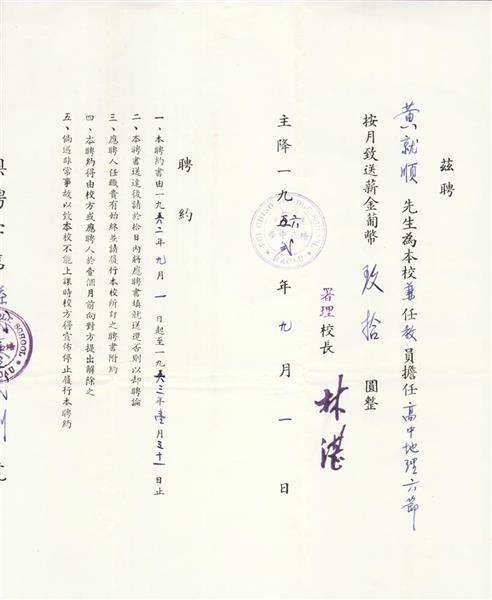 茲聘
黃就順 先生為本校兼任教員擔任高中地理六節
按月致送薪金葡幣 玖拾 圓整
署理校長 林湛
主降一九五弍年九月一日
MIDDLE SCHOOL
MACAU
聘約
一、本聘約書由一九五二年九月一日起至一九五三年壹月三十一日止
二、本聘書送達後請於拾日內將應聘書填就送還否則以却聘論
三、應聘人任職貴有始終並請履行本校所訂之聘書附約
四、本聘約得由校方或應聘人於壹個月前向對方提出解除之
五、倘遇非常事故以致本校不能上課時校方得宣佈停止履行本聘約
SCHOOL